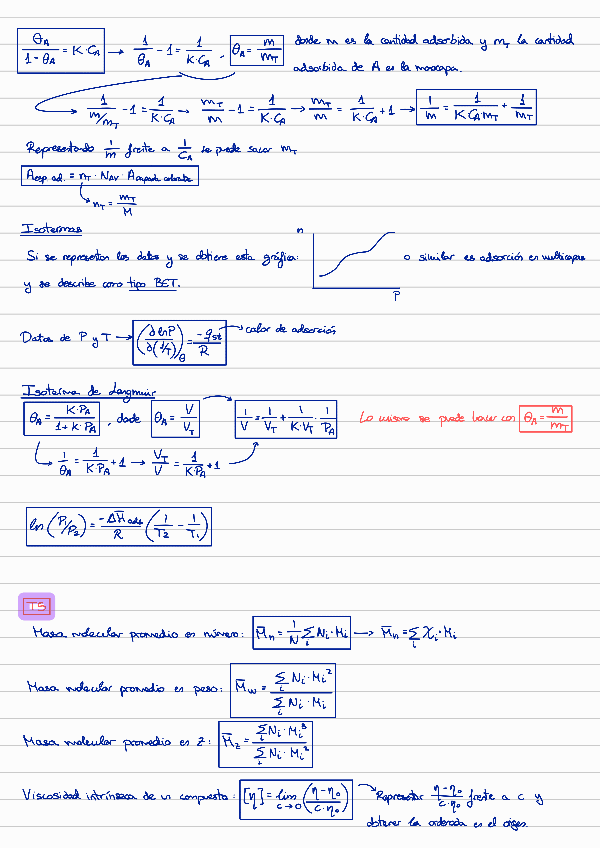 θ_A / (1 - θ_A) = K·C_A → 1/θ_A - 1 = 1/(K·C_A) , θ_A = m/m_T donde m es la cantidad adsorbida y m_T la cantidad
adsorbida de A en la monocapa.
→ 1/(m/m_T) - 1 = 1/(K·C_A) → m_T/m - 1 = 1/(K·C_A) → m_T/m = 1/(K·C_A) + 1 → 1/m = 1/(K C_A m_T) + 1/m_T
Representando 1/m frente a 1/C_A se puede sacar m_T
A_esp ad. = n_T · N_AV · A_ocupada adsorbato
n_T = m_T/M
Isotermas
n
Si se representan los datos y se obtiene esta gráfica: o similar es adsorción en multicapas
y se describe como tipo BET.
P
Datos de P y T → (∂lnP/∂(1/T))_θ = -q_st/R → calor de adsorción
Isoterma de Langmuir
θ_A = K·P_A/(1 + K·P_A) , donde θ_A = V/V_T 1/V = 1/V_T + 1/(K·V_T) · 1/P_A Lo mismo se puede hacer con θ_A = m/m_T
→ 1/θ_A = 1/(K·P_A) + 1 → V_T/V = 1/(K·P_A) + 1
ln(P_1/P_2) = -ΔH̄_ads/R (1/T_2 - 1/T_1)
T5
Masa molecular promedio en número: M̄_n = 1/N Σ_i N_i·M_i → M̄_n = Σ_i X_i·M_i
Masa molecular promedio en peso: M̄_w = Σ_i N_i·M_i² / Σ_i N_i·M_i
Masa molecular promedio en Z: M̄_z = Σ_i N_i·M_i³ / Σ_i N_i·M_i²
Viscosidad intrínseca de un compuesto: [η] = lim_{c→0} ((η-η_0)/(c·η_0)) → Representar (η-η_0)/(c·η_0) frente a c y
obtener la ordenada en el origen.